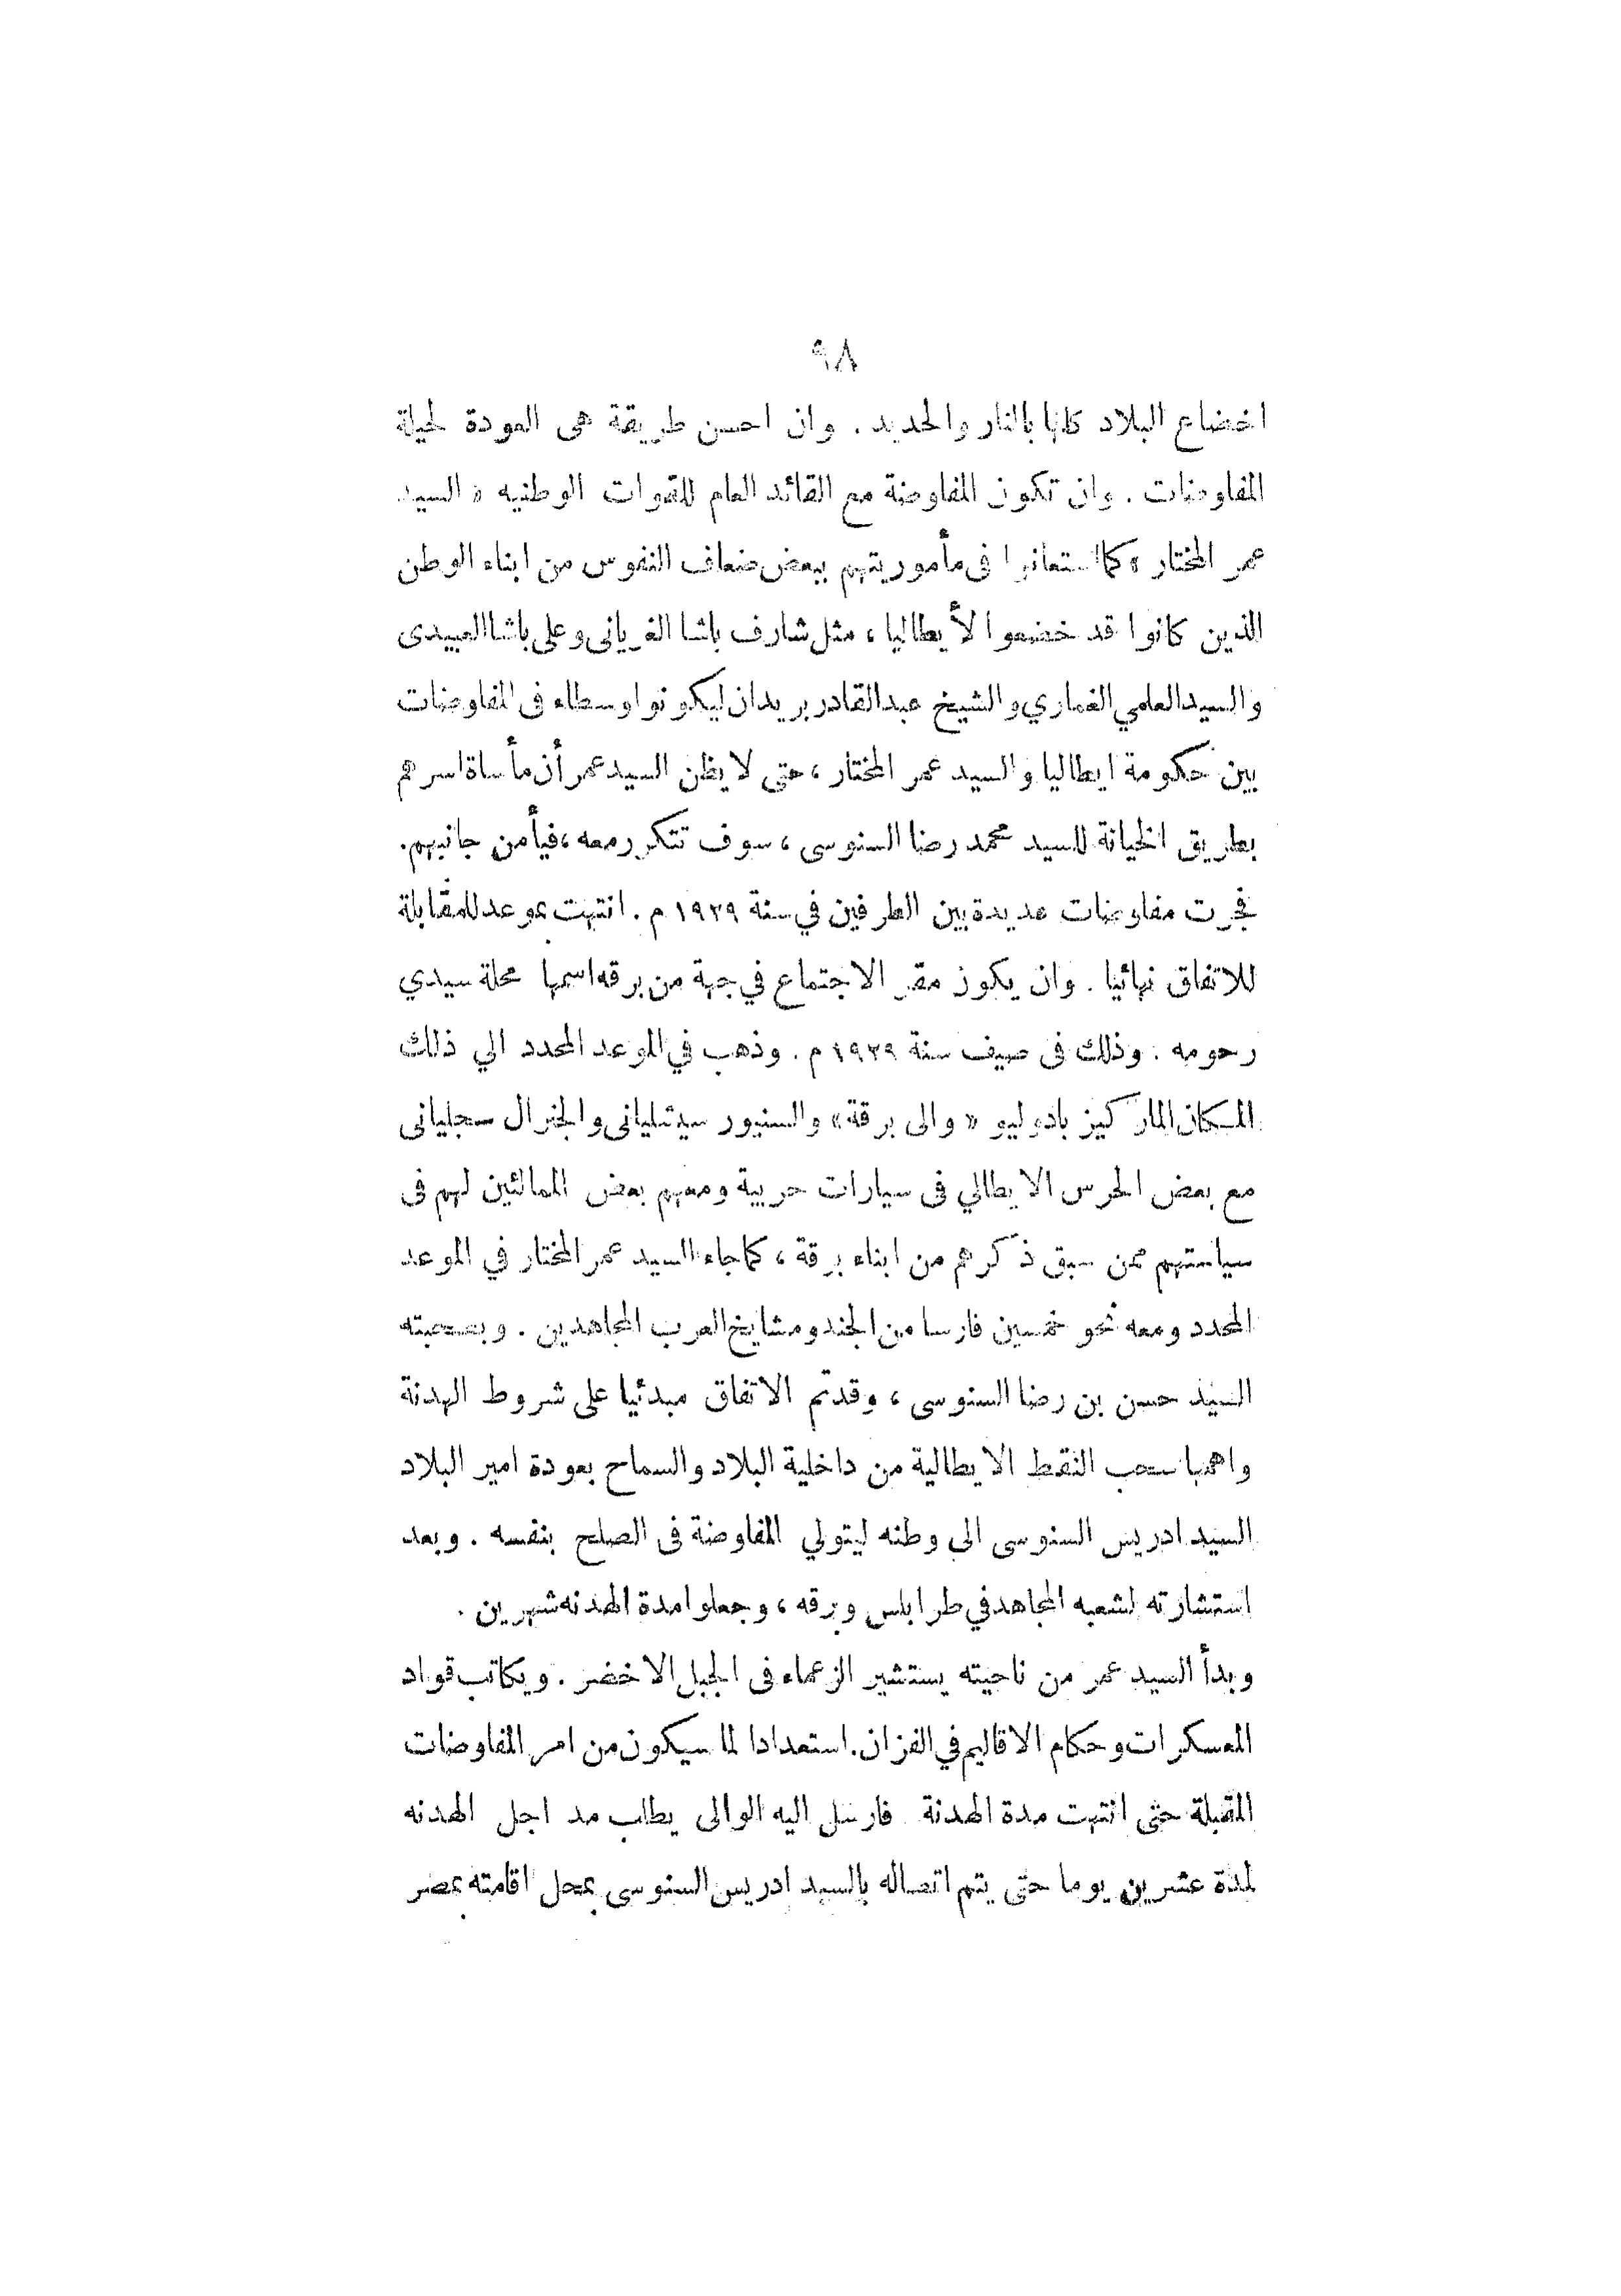 ٩٨
اخضاع البلاد كلها بالنار والحديد . وان احسن طريقة هى العودة لحيلة
المفاوضات . وان تكون المفاوضة مع القائد العام للقوات الوطنيه « السيد
عمر المختار » كما استعانوا فى مأموريتهم ببعض ضعاف النفوس من ابناء الوطن
الذين كانوا قد خضعوا لأيطاليا ، مثل شارف باشا الغريانى وعلى باشا العبيدى
والسيد العلمي الغماري والشيخ عبدالقادر بريدان ليكونوا وسطاء فى المفاوضات
بين حكومة ايطاليا والسيد عمر المختار ، حتى لا يظن السيد عمر أن مأساة اسرهم
بطريق الخيانة للسيد محمد رضا السنوسى ، سوف تتكرر معه ، فيأمن جانبهم.
فجرت مفاوضات عديدة بين الطرفين في سنة ١٩٢٩ م . انتهت بموعد للمقابلة
للاتفاق نهائيا . وان يكون مقر الاجتماع في جهة من برقه اسمها محلة سيدي
رحومه . وذلك فى صيف سنة ١٩٢٩ م . وذهب في الموعد المحدد الي ذلك
المكان المار كيز بادوليو « والى برقة » والسنيور سيشليانى والجنرال سجليانى
مع بعض الحرس الايطالي فى سيارات حربية ومعهم بعض الممالئين لهم فى
سياستهم ممن سبق ذكرهم من ابناء برقة ، كما جاء السيد عمر المختار في الموعد
المحدد ومعه نحو خمسين فارسا من الجند ومشايخ العرب المجاهدين . وبصحبته
السيد حسن بن رضا السنوسى ، وقد تم الاتفاق مبدئيا على شروط الهدنة
واهمها سحب النقط الايطالية من داخلية البلاد والسماح بعودة امير البلاد
السيد ادريس السنوسى الى وطنه ليتولي المفاوضة فى الصلح بنفسه . وبعد
استشارته لشعبه المجاهد في طرابلس وبرقه ، وجعلوا مدة الهدنه شهرين .
وبدأ السيد عمر من ناحيته يستشير الزعماء فى الجبل الاخضر . ويكاتب قواد
المعسكرات وحكام الاقاليم في الفزان. استعدادا لما سيكون من امر المفاوضات
المقبلة حتى انتهت مدة الهدنة فارسل اليه الوالى يطلب مد اجل الهدنه
لمدة عشرين يوما حتى يتم اتصاله بالسيد ادريس السنوسى بمحل اقامته بمصر